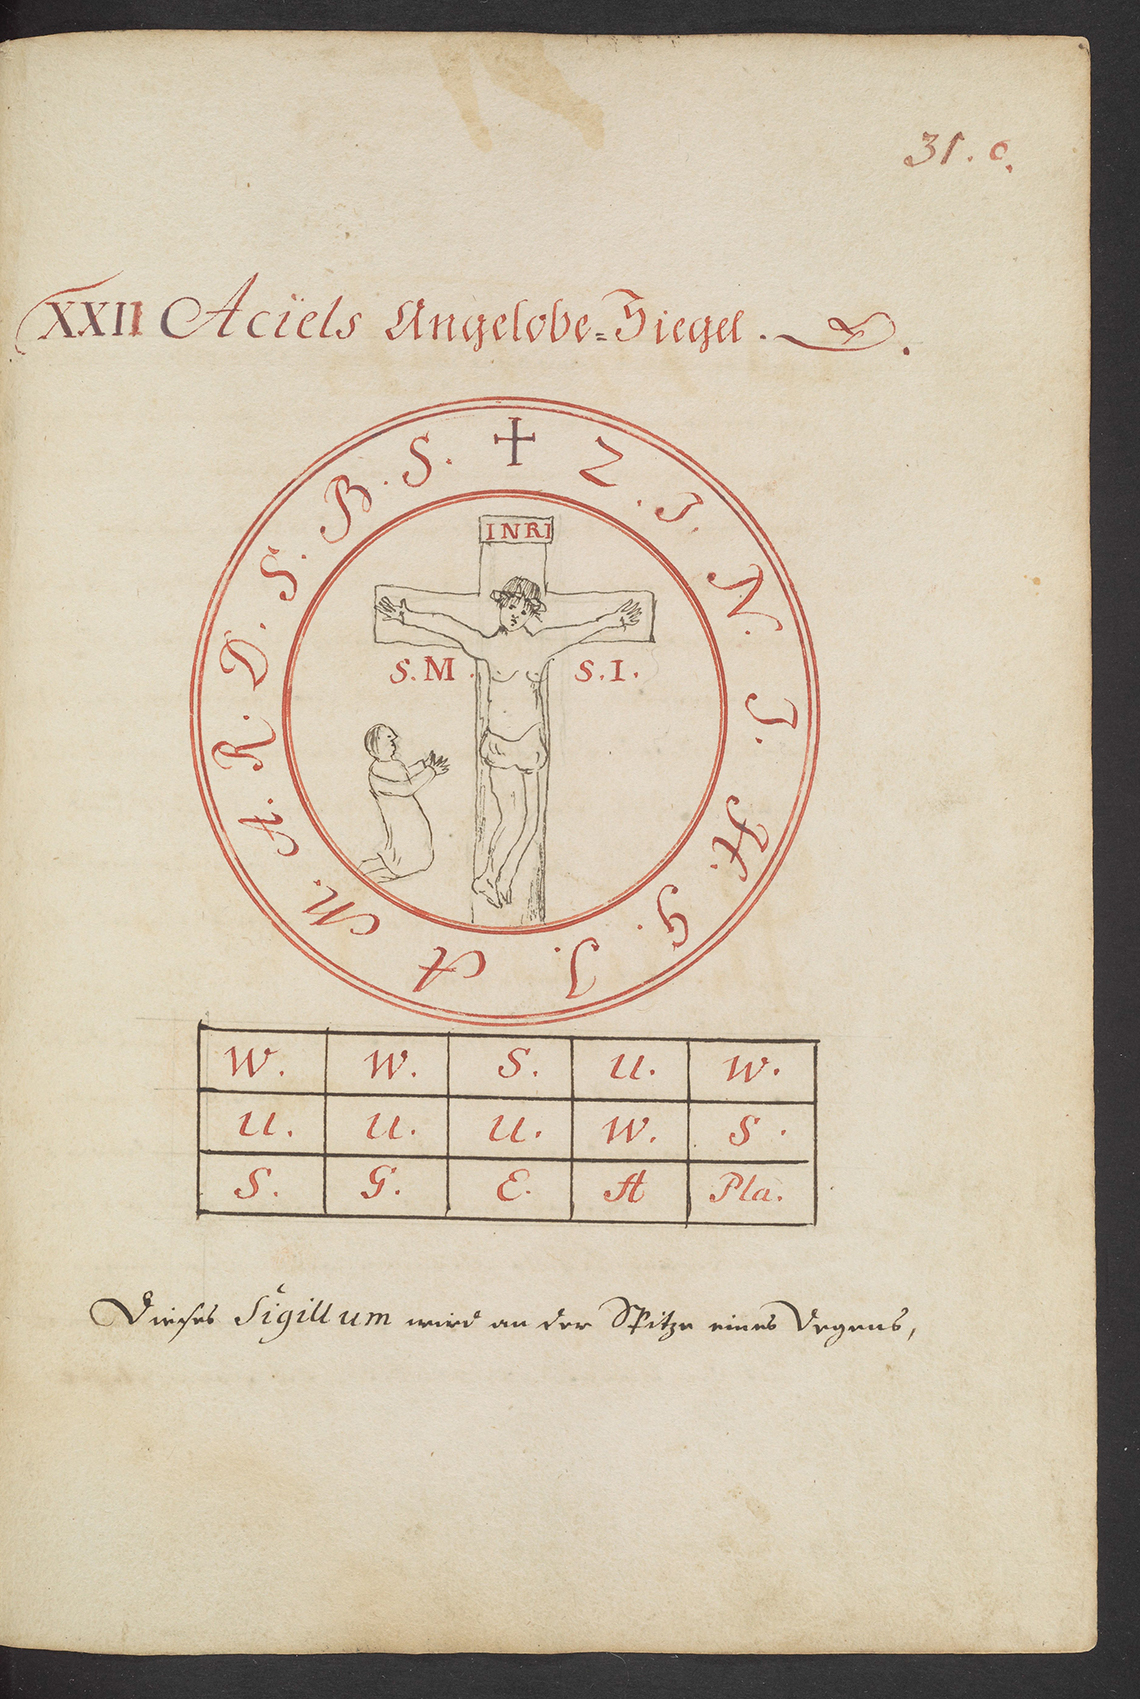 31. c.
XXII Aciels Angelobe=Siegel.
✝ Z. I. N. I. H. G. I. A M. A. R. D. S. B. S.
INRI
S. M. S. I.
W. W. S. U. W.
U. U. U. W. S.
S. G. E. A Pla.
Dieses Sigillum wird an der Spitze eines Degens,